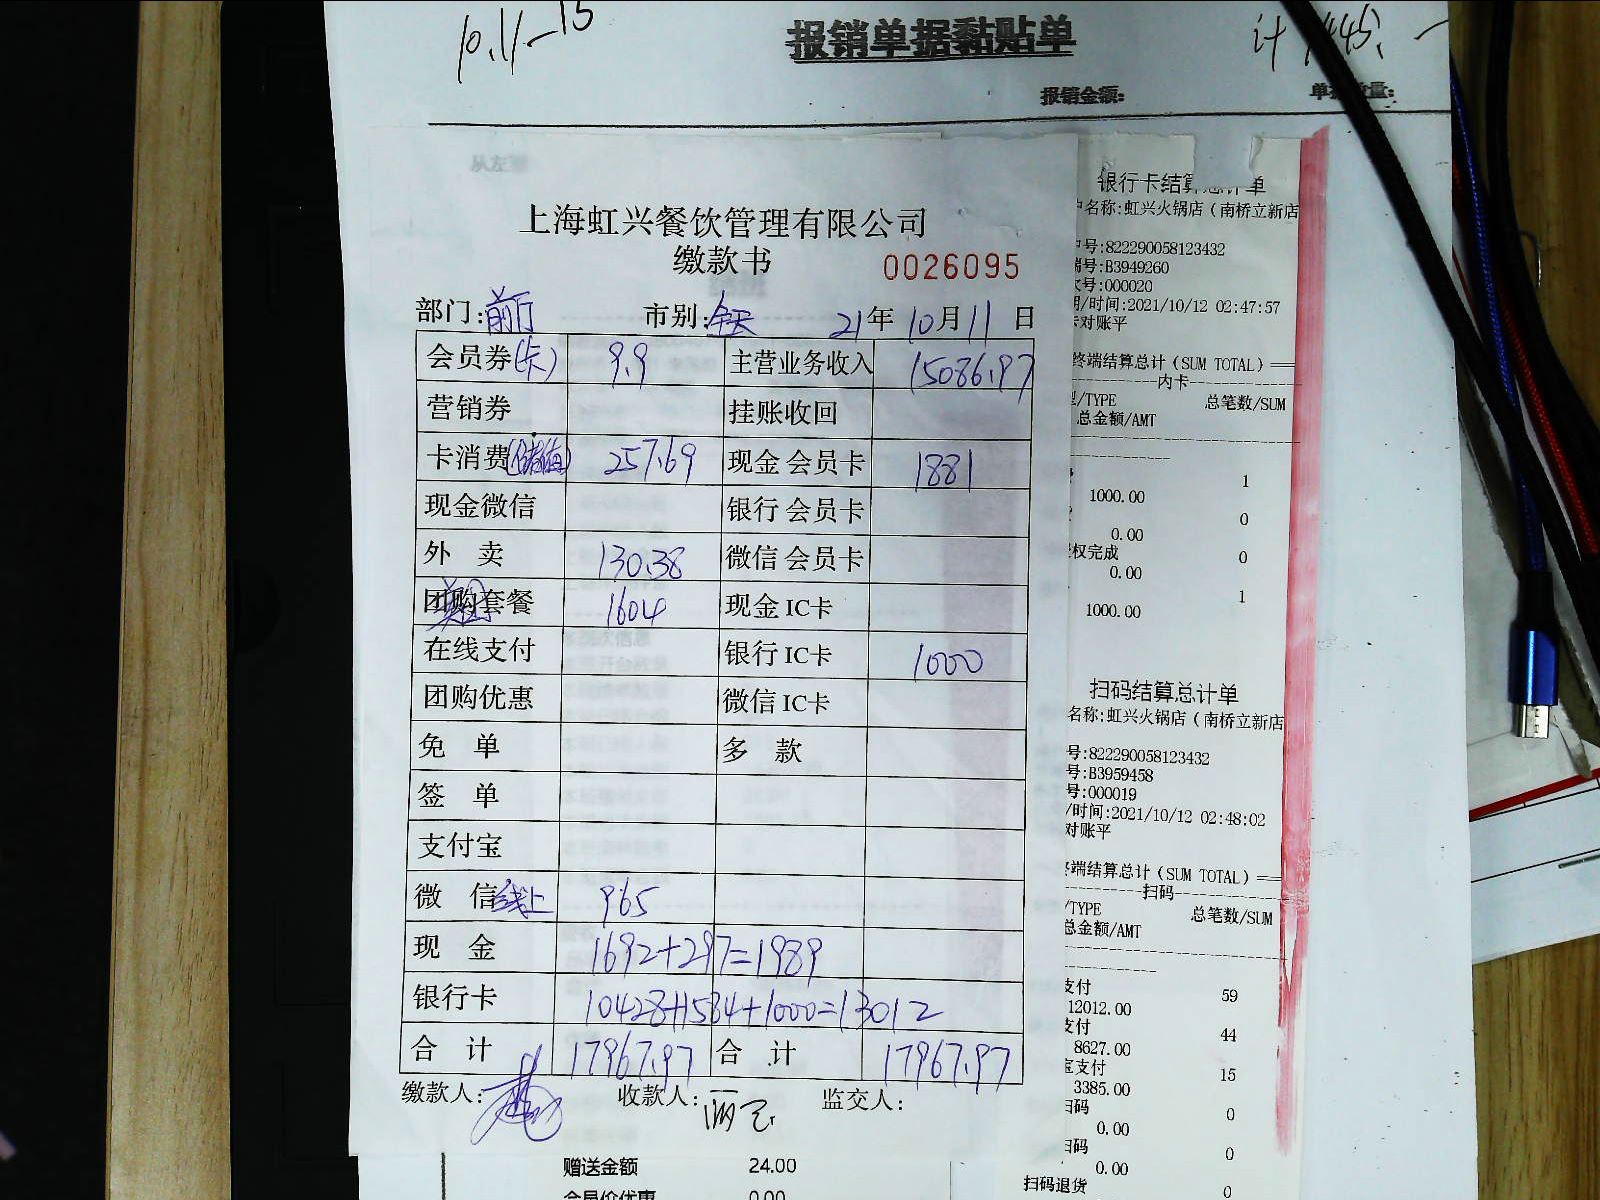 10.11-15
报销单据黏贴单
计 1445.-
报销金额:
上海虹兴餐饮管理有限公司
缴款书
0026095
部门:前厅 市别:全天 21年10月11日
会员券(卡) 9.9 主营业务收入 15086.97
营销券 挂账收回
卡消费(储值) 257.69 现金 会员卡 1881
现金微信 银行 会员卡
外 卖 130.38 微信 会员卡
团购套餐 1604 现金 IC卡
在线支付 银行 IC卡 1000
团购优惠 微信 IC卡
免 单 多 款
签 单
支付宝
微 信 线上 965
现 金 1692+297=1989
银行卡 10428+1584+1000=13012
合 计 17967.97 合 计 17967.97
缴款人: 收款人: 监交人:
赠送金额 24.00
会员价优惠 0.00
银行卡结算总计单
户名称:虹兴火锅店(南桥立新店
户号:822290058123432
端号:B3949260
次号:000020
期/时间:2021/10/12 02:47:57
卡对账平
终端结算总计(SUM TOTAL)==
内卡
型/TYPE 总笔数/SUM
总金额/AMT
1
1000.00
0
0.00
权完成 0
0.00
1
1000.00
扫码结算总计单
名称:虹兴火锅店(南桥立新店
号:822290058123432
号:B3959458
号:000019
/时间:2021/10/12 02:48:02
对账平
终端结算总计(SUM TOTAL)==
扫码
/TYPE 总笔数/SUM
总金额/AMT
支付 59
12012.00
支付 44
8627.00
宝支付 15
3385.00
扫码 0
0.00
扫码 0
0.00
扫码退货 0